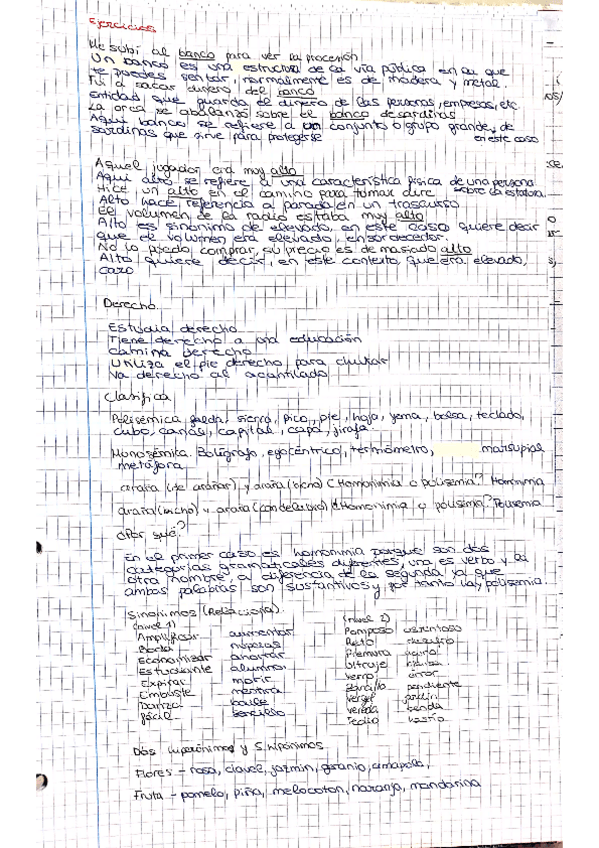 Ejercicios
Me subí al banco para ver la procesión
Un banco es una estructura de la vía pública en la que
te puedes sentar, normalmente es de madera y metal.
Fui a sacar dinero del banco
Entidad que guarda el dinero de las personas, empresas, etc
La orca se abalanzó sobre el banco de sardinas
Aquí banco se refiere a un conjunto o grupo grande, de
sardinas que sirve para protegerse en este caso
Aquel jugador era muy alto
Aquí alto se refiere a una característica física de una persona
sobre la estatura.
Hice un alto en el camino para tomar
Alto hace referencia a parada en un trascurso
El volumen de la radio estaba muy alto
Alto es sinónimo de elevado, en este caso quiere decir
que el volumen era elevado, ensordecedor.
No lo puedo comprar, su precio es demasiado alto
Alto quiere decir, en este contexto, que era elevado,
caro
Derecho.
Estudia derecho
Tiene derecho a una educación
Camina derecho
Utiliza el pie derecho para chutar
Va derecho al acantilado
Clasifica
Polisémica falda, sierra, pico, pie, hoja, yema, bolsa, teclado,
cubo, canas, capital, capa, jirafa.
Monosémica. Bolígrafo, egocéntrico, termómetro, marsupial
metáfora
araña (de arañar) y araña (bicho) ¿Homonimia o polisemia? Homonimia
araña (bicho) y araña (candelabro) ¿Homonimia o polisemia? Polisemia
¿Por qué?
En el primer caso es homonimia porque son dos
categorías gramaticales diferentes, una es verbo y la
otra nombre, a diferencia de la segunda ya que
ambas palabras son sustantivos y por tanto hay polisemia.
Sinónimos (Relaciona).
(nivel 1) (nivel 2)
Amplificar aumentar Pomposo ostentoso
Boda nupcias
Economizar ahorrar
Estudiante alumno Ultraje
Expirar morir Yerro error
Embuste mentira Zarcillo pendiente
Danza baile Vergel jardín
Fácil sencillo Vereda senda
Tedio hastío
Dos hiperónimos y 5 hipónimos
Flores - rosa, clavel, jazmín, geranio, amapola,
Fruta - pomelo, piña, melocotón, naranja, mandarina